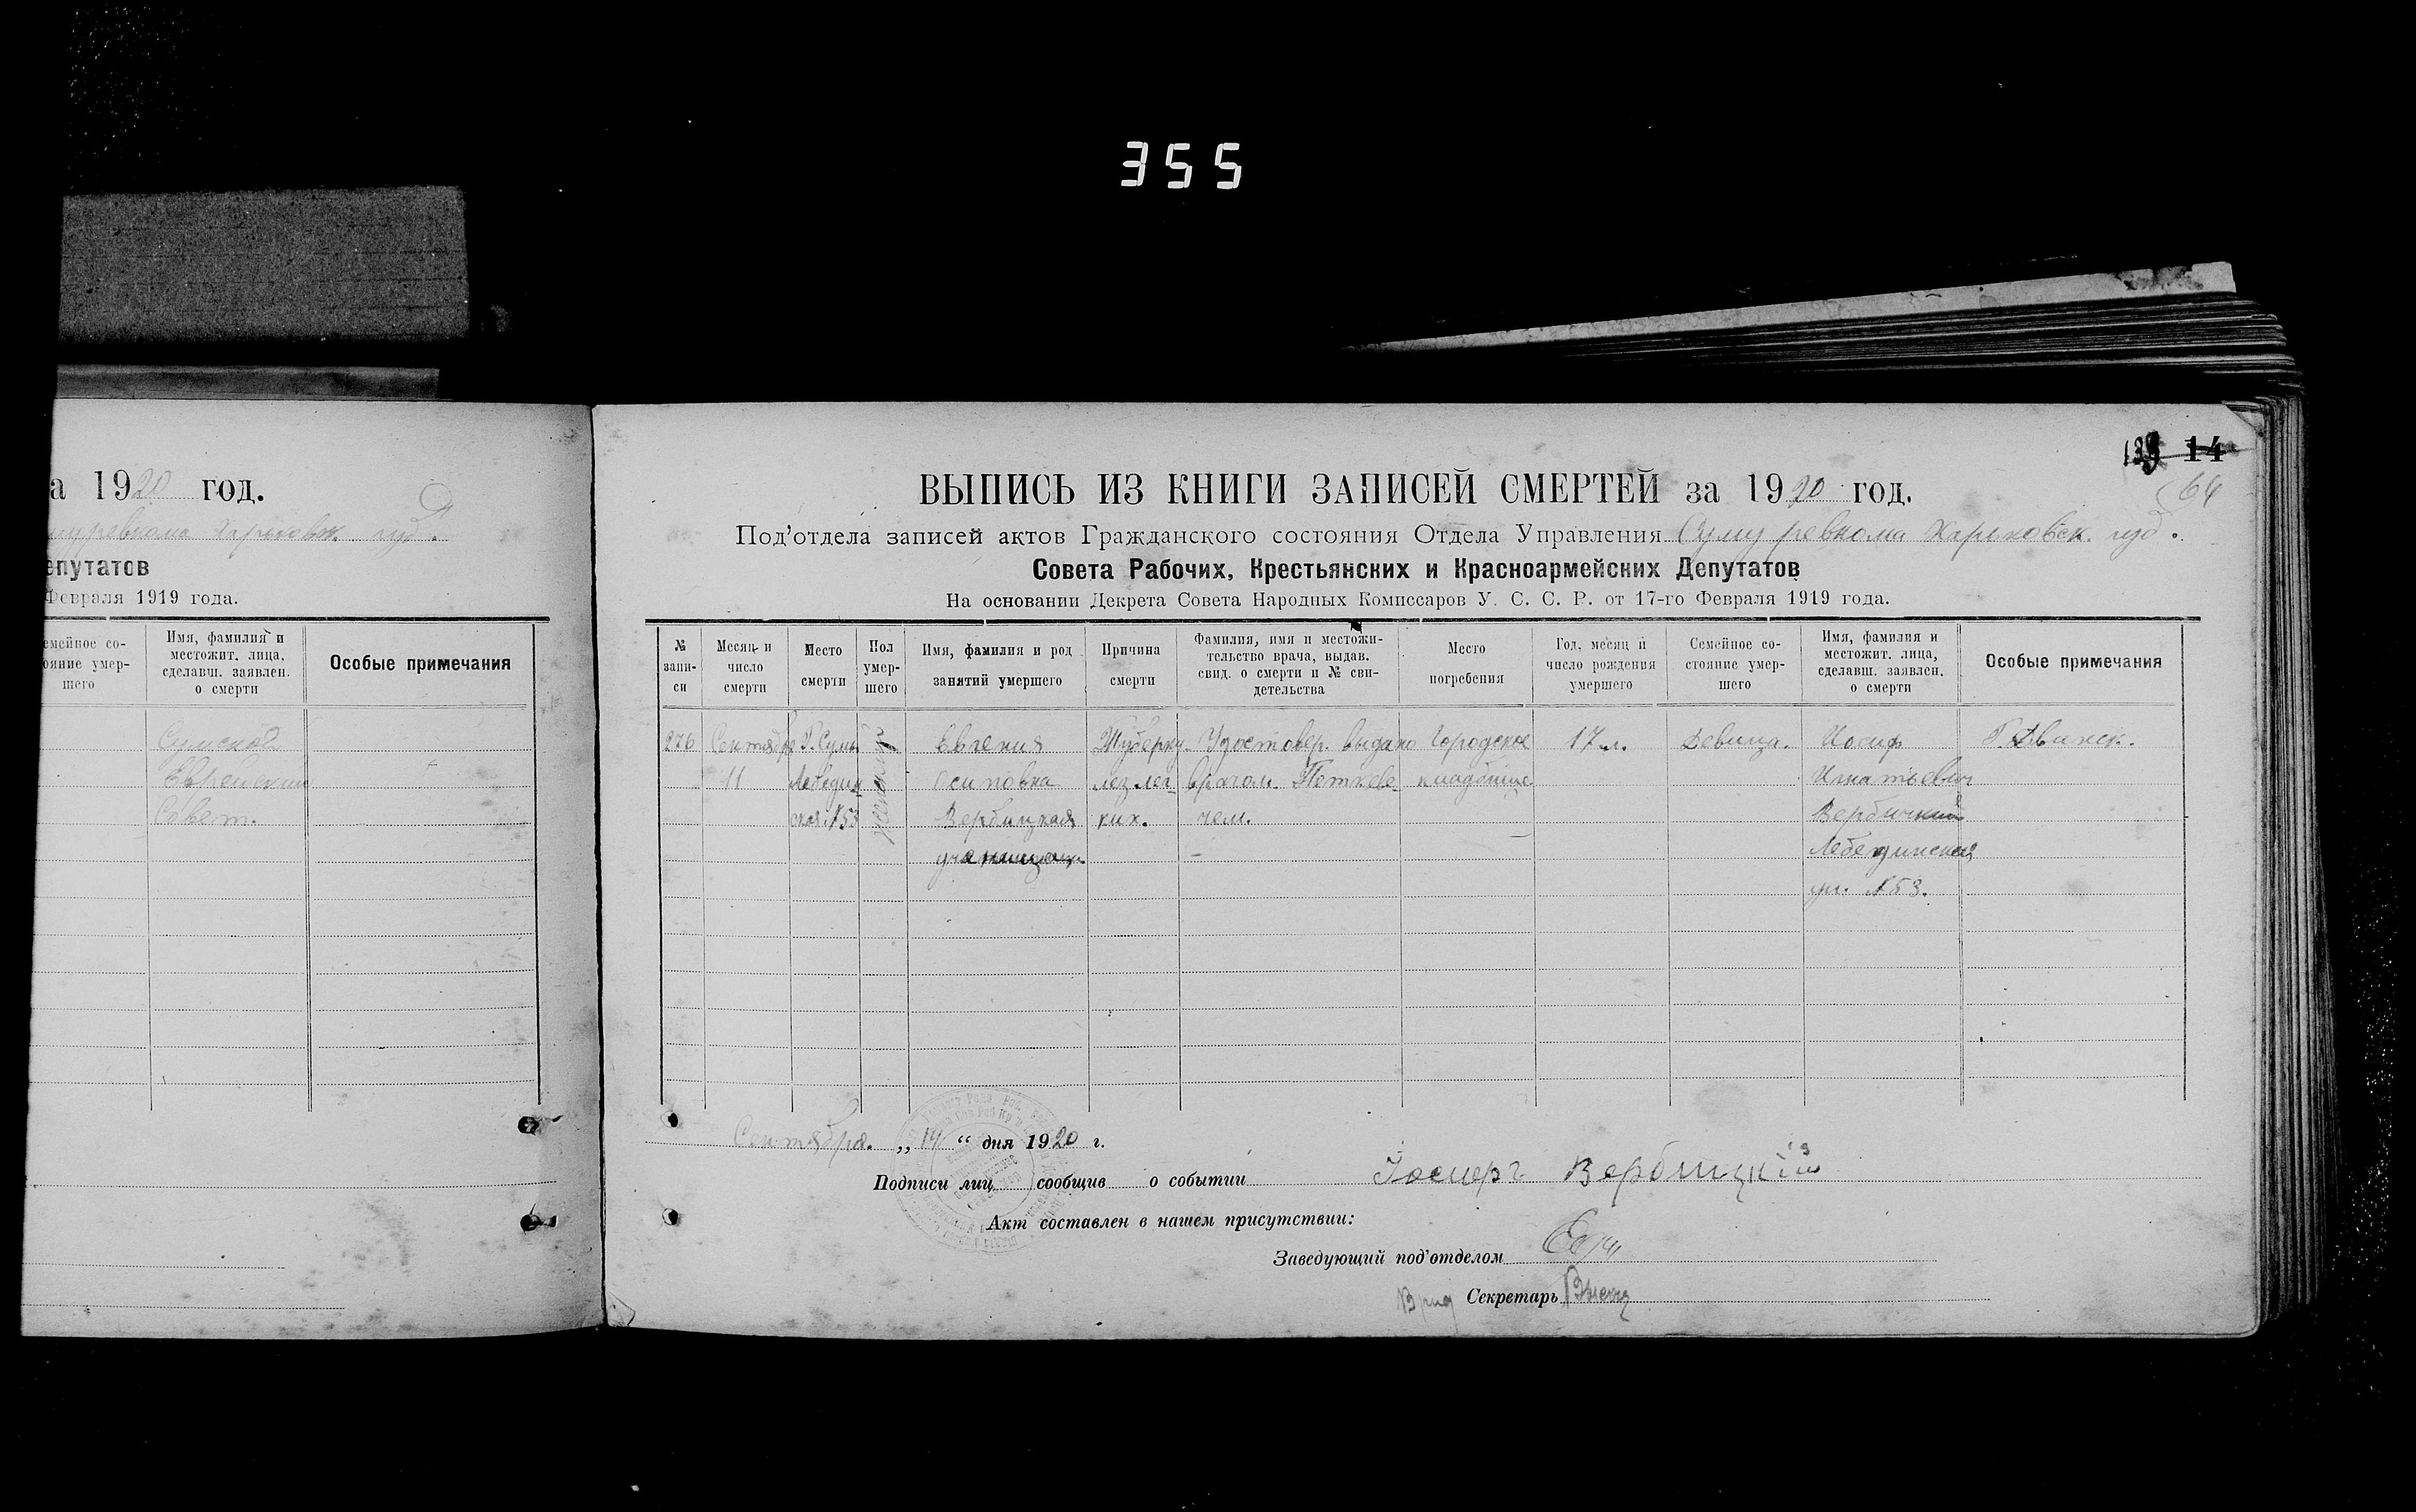 355
а 1920 год.
муревкома Харьковск. губ.
епутатов
Февраля 1919 года.
емейное со-
ояние умер-
шего
Имя, фамилия и
местожит. лица,
сделавш. заявлен.
о смерти
Особые примечания
Сумской
Еврейский
Совет.
139 14
64
ВЫПИСЬ ИЗ КНИГИ ЗАПИСЕЙ СМЕРТЕЙ за 1920 год.
Под'отдела записей актов Гражданского состояния Отдела Управления Суму ревкома Харьковск. губ.
Совета Рабочих, Крестьянских и Красноармейских Депутатов
На основании Декрета Совета Народных Комиссаров У. С. С. Р. от 17-го Февраля 1919 года.
№
запи-
си
Месяц и
число
смерти
Место
смерти
Пол
умер-
шего
Имя, фамилия и род
занятий умершего
Причина
смерти
Фамилия, имя и местожи-
тельство врача, выдав.
свид. о смерти и № сви-
детельства
Место
погребения
Год, месяц и
число рождения
умершего
Семейное со-
стояние умер-
шего
Имя, фамилия и
местожит. лица,
сделавш. заявлен.
о смерти
Особые примечания
276
Сентября
11
Г. Сумы
Лебедин
ская №53
женский
Евгения
Осиповна
Вербицкая
ученица
Туберку-
лез лег-
ких.
Удостовер. выдано
врачом Петкеве-
чем.
Городское
кладбище
17 л.
Девица.
Иосиф
Игнатьевич
Вербицкий
Лебединская
ул. №53.
Г. Двинск.
Сентября. „14“ дня 1920 г.
Подписи лиц сообщив о событии Іосифъ Вербицкій
Акт составлен в нашем присутствии:
Заведующий под'отделом
Врид Секретарь